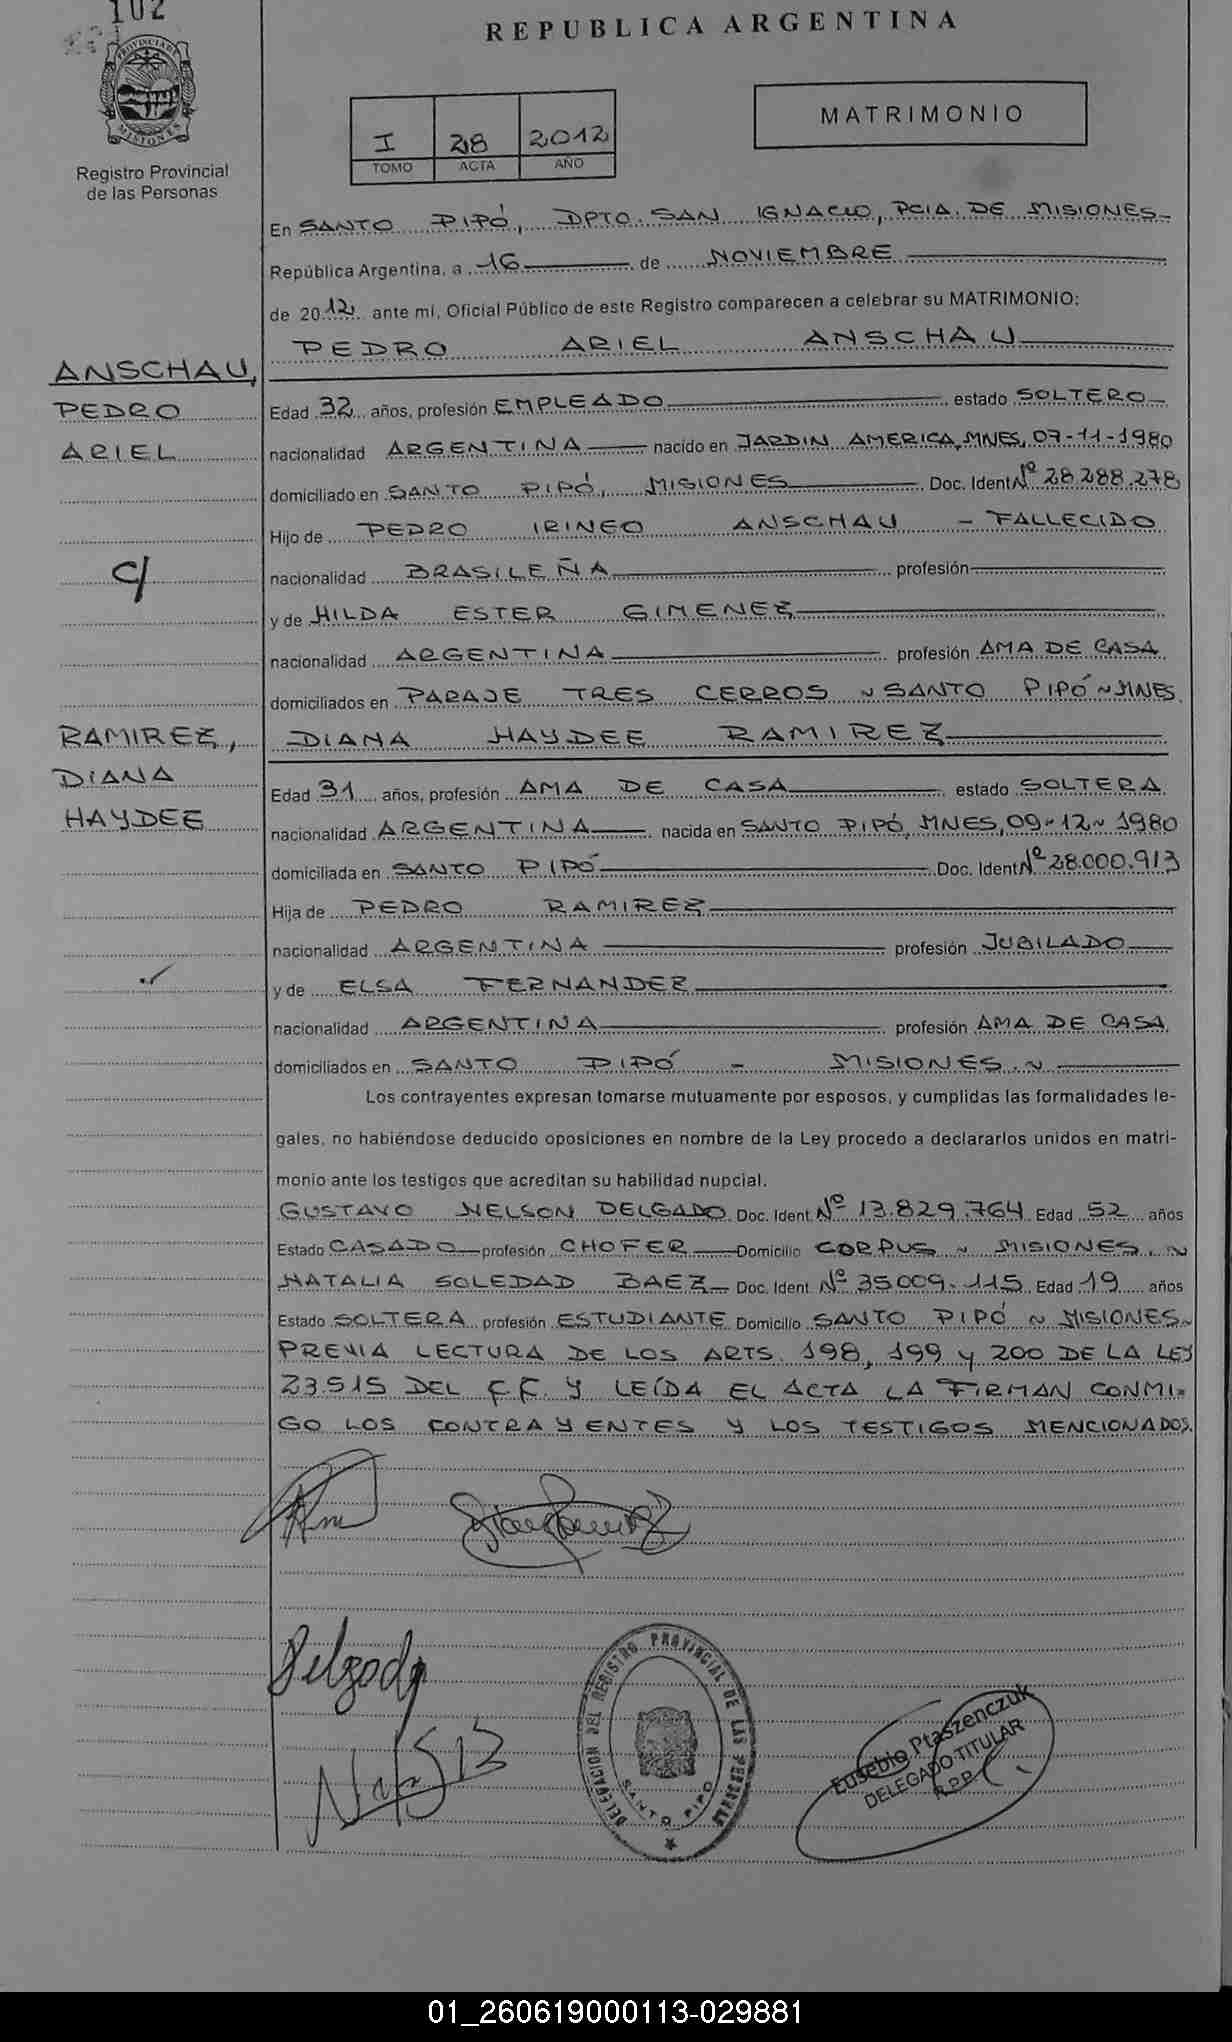 102
PROVINCIA DE MISIONES
Registro Provincial
de las Personas
REPUBLICA ARGENTINA
I 28 2012
TOMO ACTA AÑO
MATRIMONIO
En SANTO PIPÓ, DPTO. SAN IGNACIO, PCIA. DE MISIONES
República Argentina, a 16 de NOVIEMBRE
de 2012 ante mí, Oficial Público de este Registro comparecen a celebrar su MATRIMONIO:
PEDRO ARIEL ANSCHAU
ANSCHAU,
PEDRO
ARIEL
C/
RAMIREZ,
DIANA
HAYDEE
Edad 32 años, profesión EMPLEADO estado SOLTERO
nacionalidad ARGENTINA nacido en JARDIN AMERICA, MNES, 07-11-1980
domiciliado en SANTO PIPÓ, MISIONES Doc. Ident Nº 28.288.278
Hijo de PEDRO IRINEO ANSCHAU - FALLECIDO
nacionalidad BRASILEÑA profesión
y de HILDA ESTER GIMENEZ
nacionalidad ARGENTINA profesión AMA DE CASA
domiciliados en PARAJE TRES CERROS ~ SANTO PIPÓ ~ MNES
DIANA HAYDEE RAMIREZ
Edad 31 años, profesión AMA DE CASA estado SOLTERA
nacionalidad ARGENTINA nacida en SANTO PIPÓ, MNES, 09-12-1980
domiciliada en SANTO PIPÓ Doc. Ident Nº 28.000.913
Hija de PEDRO RAMIREZ
nacionalidad ARGENTINA profesión JUBILADO
y de ELSA FERNANDEZ
nacionalidad ARGENTINA profesión AMA DE CASA
domiciliados en SANTO PIPÓ - MISIONES ~
Los contrayentes expresan tomarse mutuamente por esposos, y cumplidas las formalidades le-
gales, no habiéndose deducido oposiciones en nombre de la Ley procedo a declararlos unidos en matri-
monio ante los testigos que acreditan su habilidad nupcial.
GUSTAVO NELSON DELGADO Doc. Ident Nº 13.829.764 Edad 52 años
Estado CASADO profesión CHOFER Domicilio CORPUS ~ MISIONES ~
NATALIA SOLEDAD BAEZ Doc. Ident. Nº 35009.115 Edad 19 años
Estado SOLTERA profesión ESTUDIANTE Domicilio SANTO PIPÓ ~ MISIONES
PREVIA LECTURA DE LOS ARTS. 198, 199 Y 200 DE LA LEY
23.515 DEL C.C. Y LEÍDA EL ACTA LA FIRMAN CONMI=
GO LOS CONTRAYENTES Y LOS TESTIGOS MENCIONADOS.
Delgado
DELEGACION DEL REGISTRO PROVINCIAL DE LAS PERSONAS
SANTO PIPO
Eusebio Ptaszenczuk
DELEGADO TITULAR
R.P.P.
01_260619000113-029881